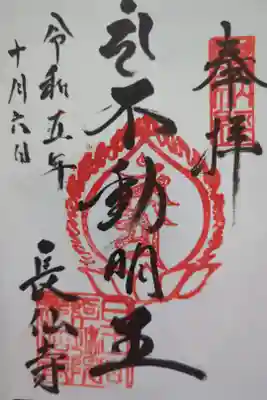 奉拝
不動明王
長仙寺
令和五年
十月六日